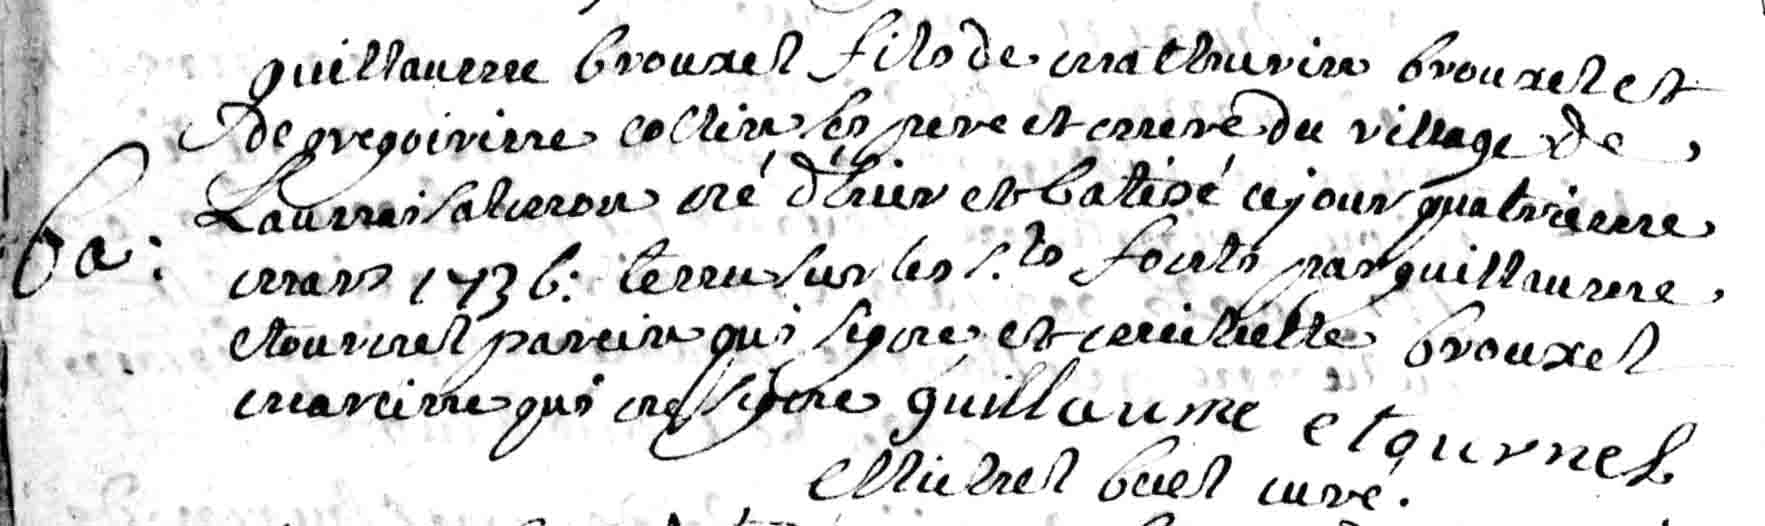 guillaume brouxel fils de mathurin brouxel et
de gregoirinne collin ses pere et mere du village de
né d'hier et batisé ce jour quatrieme
ba:
mars 1736: tenu sur les s.ts fonts par guillaume
etournel parein qui signe et michelle brouxel
mareinne qui ne signe guillaume etournel
Michel curé.